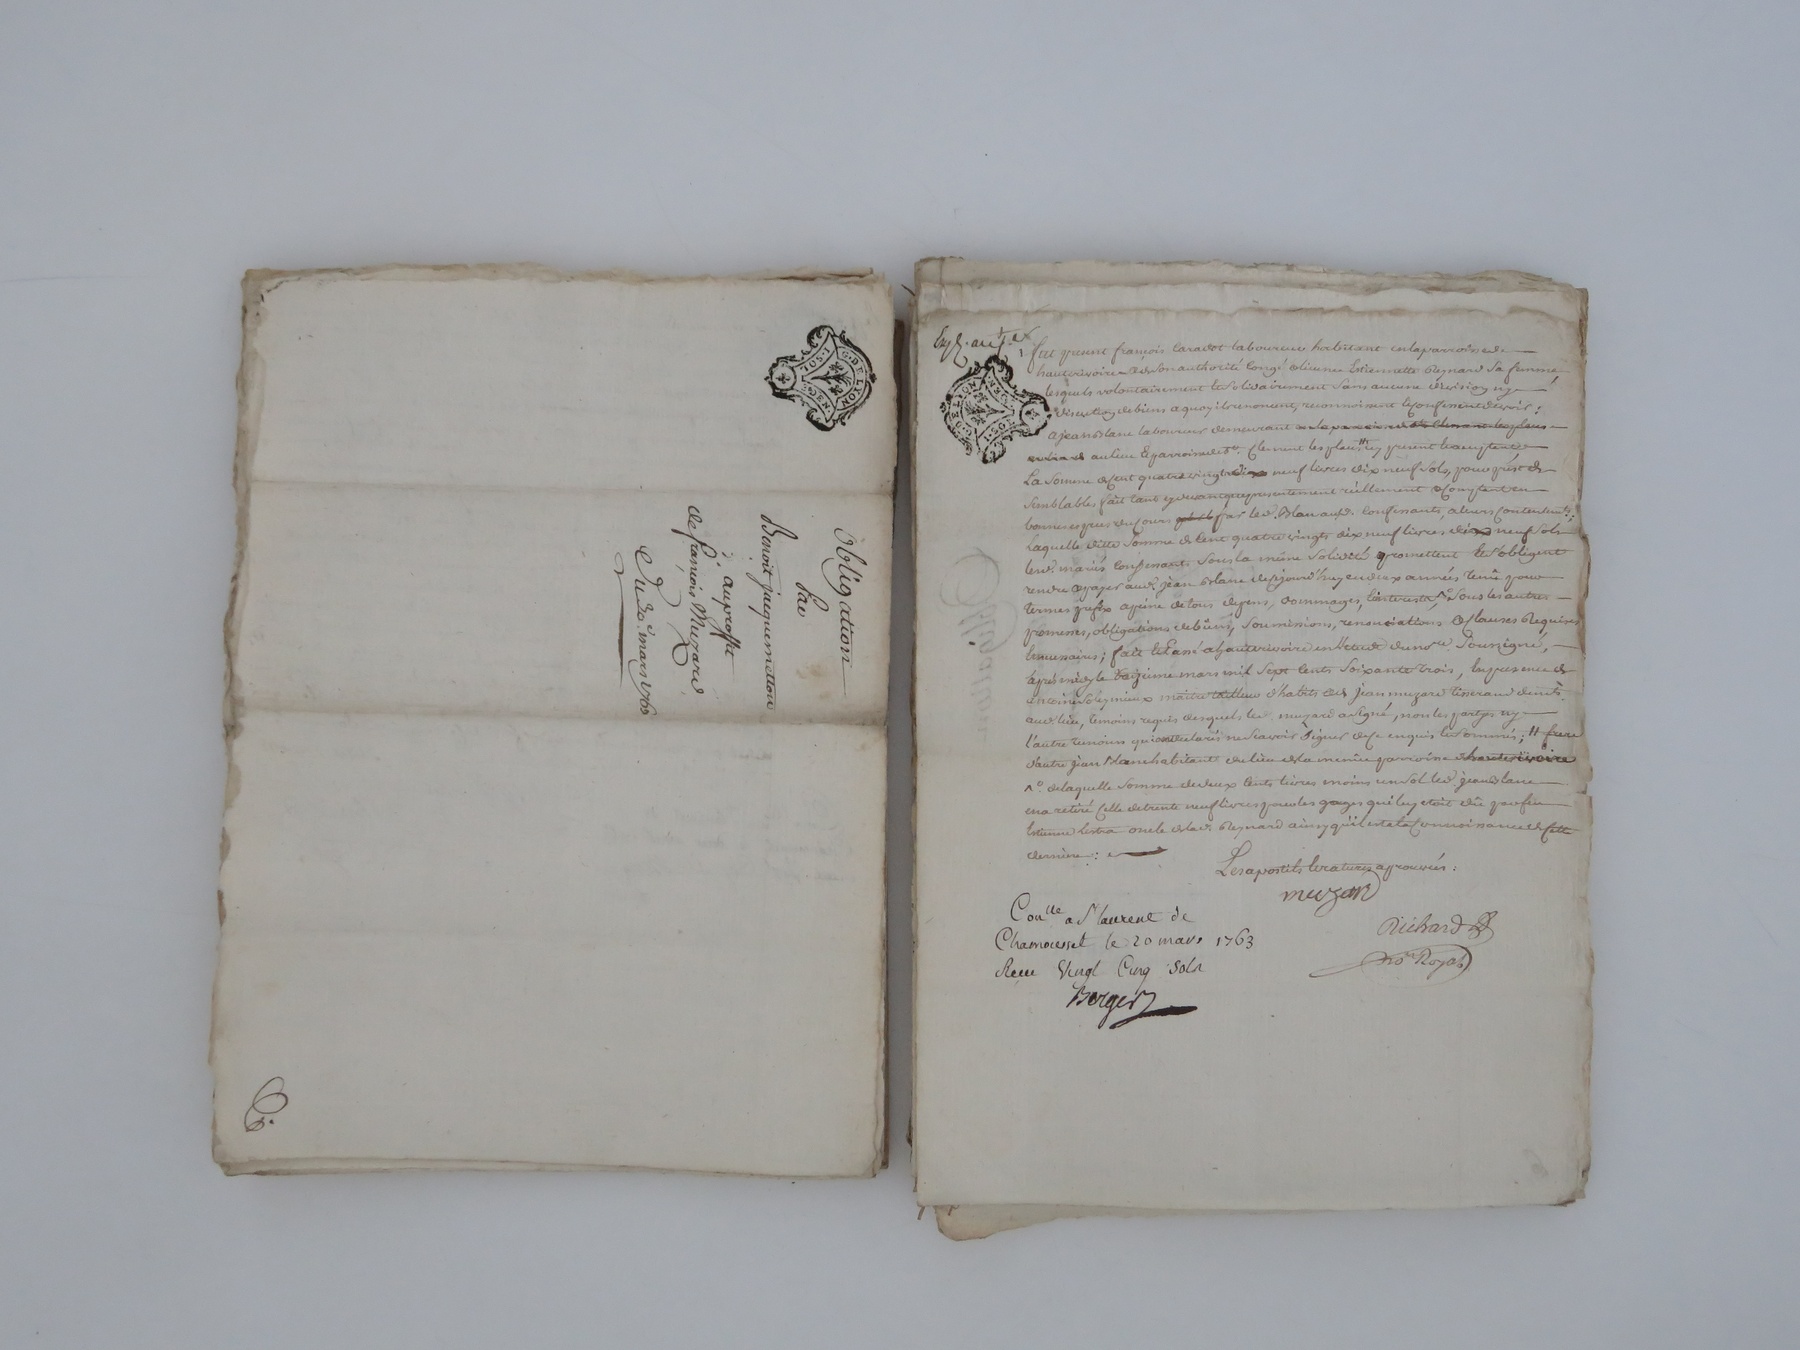 Obligation
Par
Benoit jacquemetton
à auproffit
de françois Muzard
Du 30e. mars 1763
G. DE LYON
1 OS. 1 DEN.
G. DE LYON
1 OS. 1 DEN.
fut present françois Caradot laboureur habitant en la parroisse de
hauterivoire de son authorité congé et licence Estiennette Reynard sa femme
lesquels volontairement et solidairement sans aucune division ny
discution de biens a quoy ils renoncent, reconnoissent et confessent devoir :
a jean blanc laboureur demeurant
au lieu et parroisse de St. Clement les places icy present et acceptant
La somme de cent quatre vingt dix neuf livres dix neuf sols, pour prêt de
semblables fait tant cy devant que presentement réellement et comptant en
bonnes especes du cours par led. Blanc auxd. confessants, a leurs contentents ;
laquelle ditte somme de cent quatre vingts dix neuf livres dix neuf sols
lesd. mariés confessants sous la même solidité promettent et s'obligent
rendre et payer aud. jean blanc dicy et jourd'huy en deux années tenû pour
termes prefix a peine de tous depens, dommages, interests, sous les autres
promesses, obligations de biens, soumissions, renonciations et clauses requises
et necessaires ; fait et passé a hauterivoire en l'etude du nore. soussigné,
après midy le mars mil sept cents soixante trois, en presence de
antoine maitre tailleur d'habits et de jean muzard tisserand
aud. lieu, temoins requis desquels led. muzard a signé, non les partyes ny
l'autre temoins qui ont declarés ne scavoir signer de ce enquis et sommés ; # frere
d'autre jean blanc habitant du lieu et de la même parroisse d'hauterivoire
de laquelle somme de deux cents livres moins un sol led. jean blanc
en a retiré celle de trente neuf livres pour les gages qui luy etoit dû par feu
Estienne Lestra oncle de lad. Reynard ainsy qu'il est a la connoissance de cette
derniere :
Les apostils et ratures approuvés :
muzard
Richard
nore. Royal
Conlle a St laurent de
Chamousset le 20 mars 1763
Reçu Vingt Cinq Sols
Berger